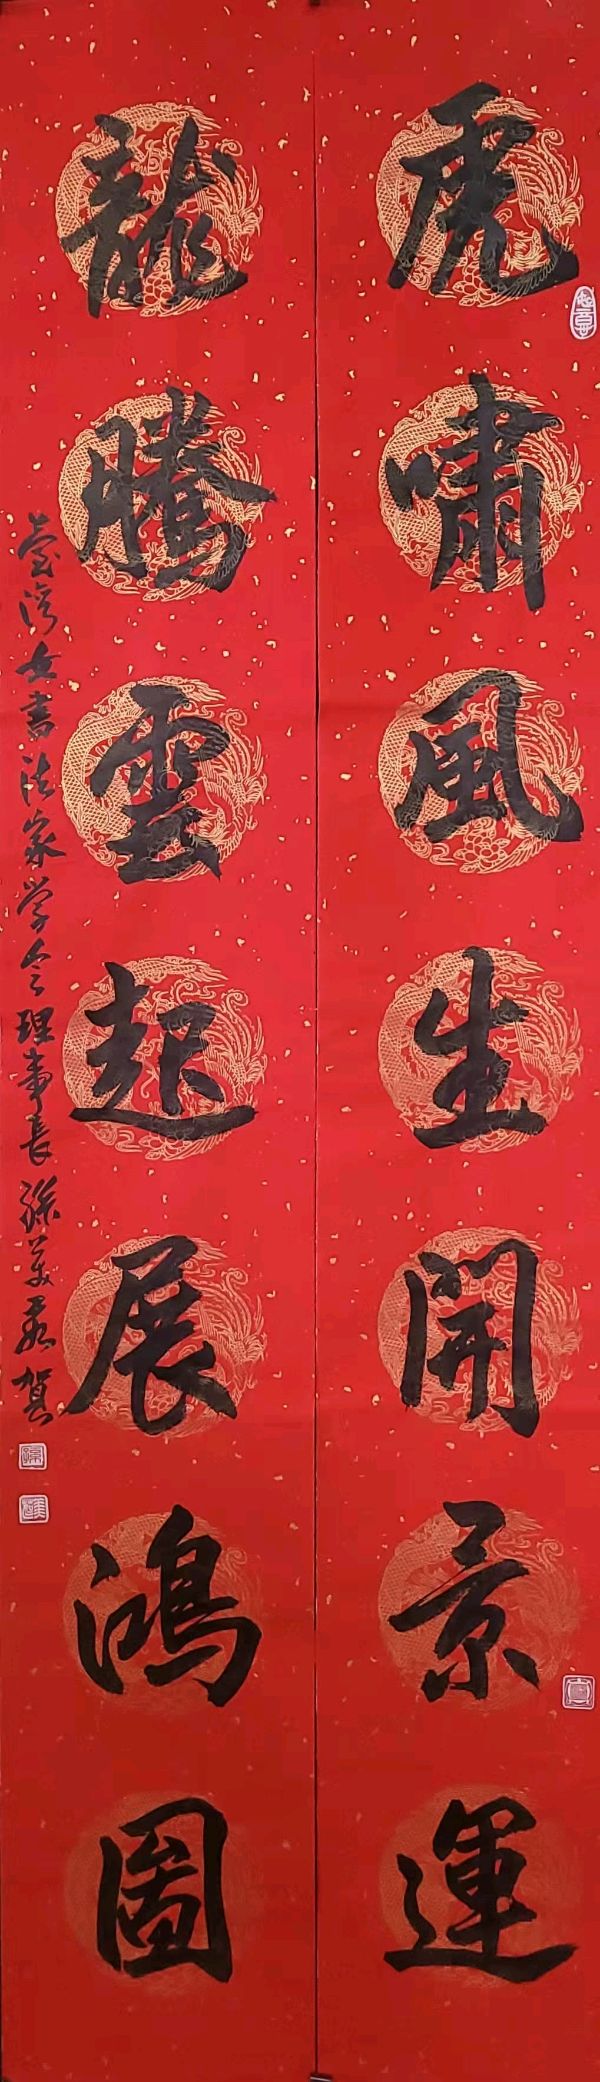 虎嘯風生開景運
龍騰雲起展鴻圖
臺灣女書法家学会理事長孫美君賀